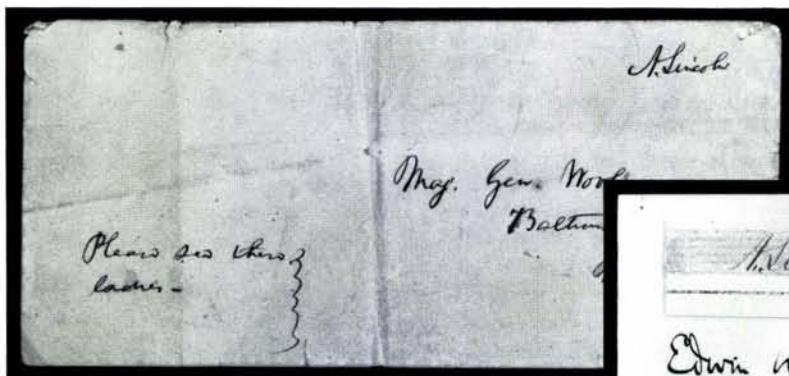 A. Lincoln
Maj. Gen. Wool
Baltim
Please see these
ladies -
A. Li
Edwin